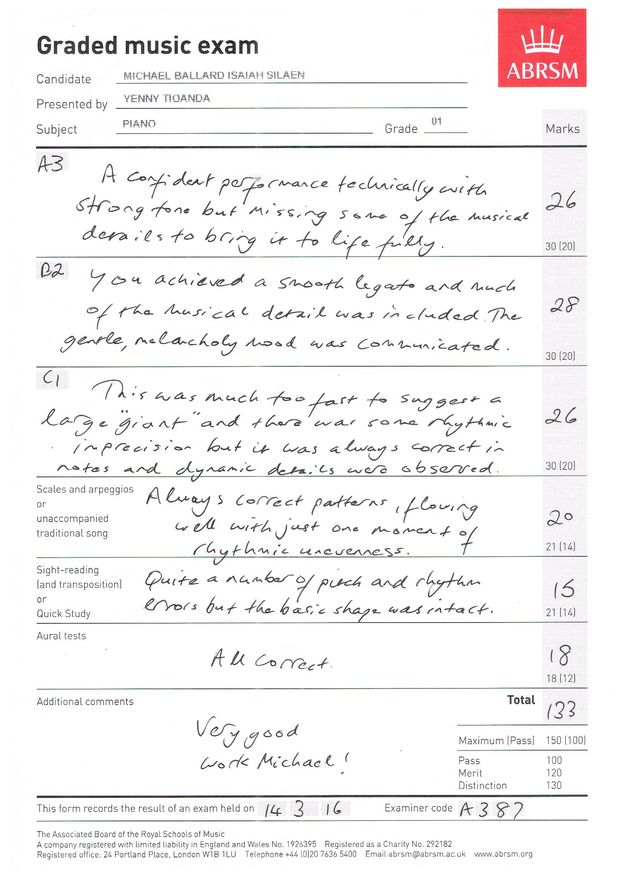 Graded music exam
ABRSM
Candidate MICHAEL BALLARD ISAIAH SILAEN
Presented by YENNY TIOANDA
Subject PIANO Grade 01 Marks
A3
A confident performance technically with
strong tone but missing some of the musical
details to bring it to life fully.
26
30 (20)
B2
You achieved a smooth legato and much
of the musical detail was included. The
gentle, melancholy mood was communicated.
28
30 (20)
C1
This was much too fast to suggest a
large "giant" and there was some rhythmic
imprecision but it was always correct in
notes and dynamic details were observed.
26
30 (20)
Scales and arpeggios
or
unaccompanied
traditional song
Always correct patterns, flowing
well with just one moment of
rhythmic unevenness.
20
21 (14)
Sight-reading
(and transposition)
or
Quick Study
Quite a number of pitch and rhythm
errors but the basic shape was intact.
15
21 (14)
Aural tests
All correct.
18
18 (12)
Additional comments
Very good
work Michael!
Total 133
Maximum (Pass) 150 (100)
Pass 100
Merit 120
Distinction 130
This form records the result of an exam held on 14 3 16 Examiner code A387
The Associated Board of the Royal Schools of Music
A company registered with limited liability in England and Wales No. 1926395 Registered as a Charity No. 292182
Registered office: 24 Portland Place, London W1B 1LU Telephone +44 (0)20 7636 5400 Email abrsm@abrsm.ac.uk www.abrsm.org